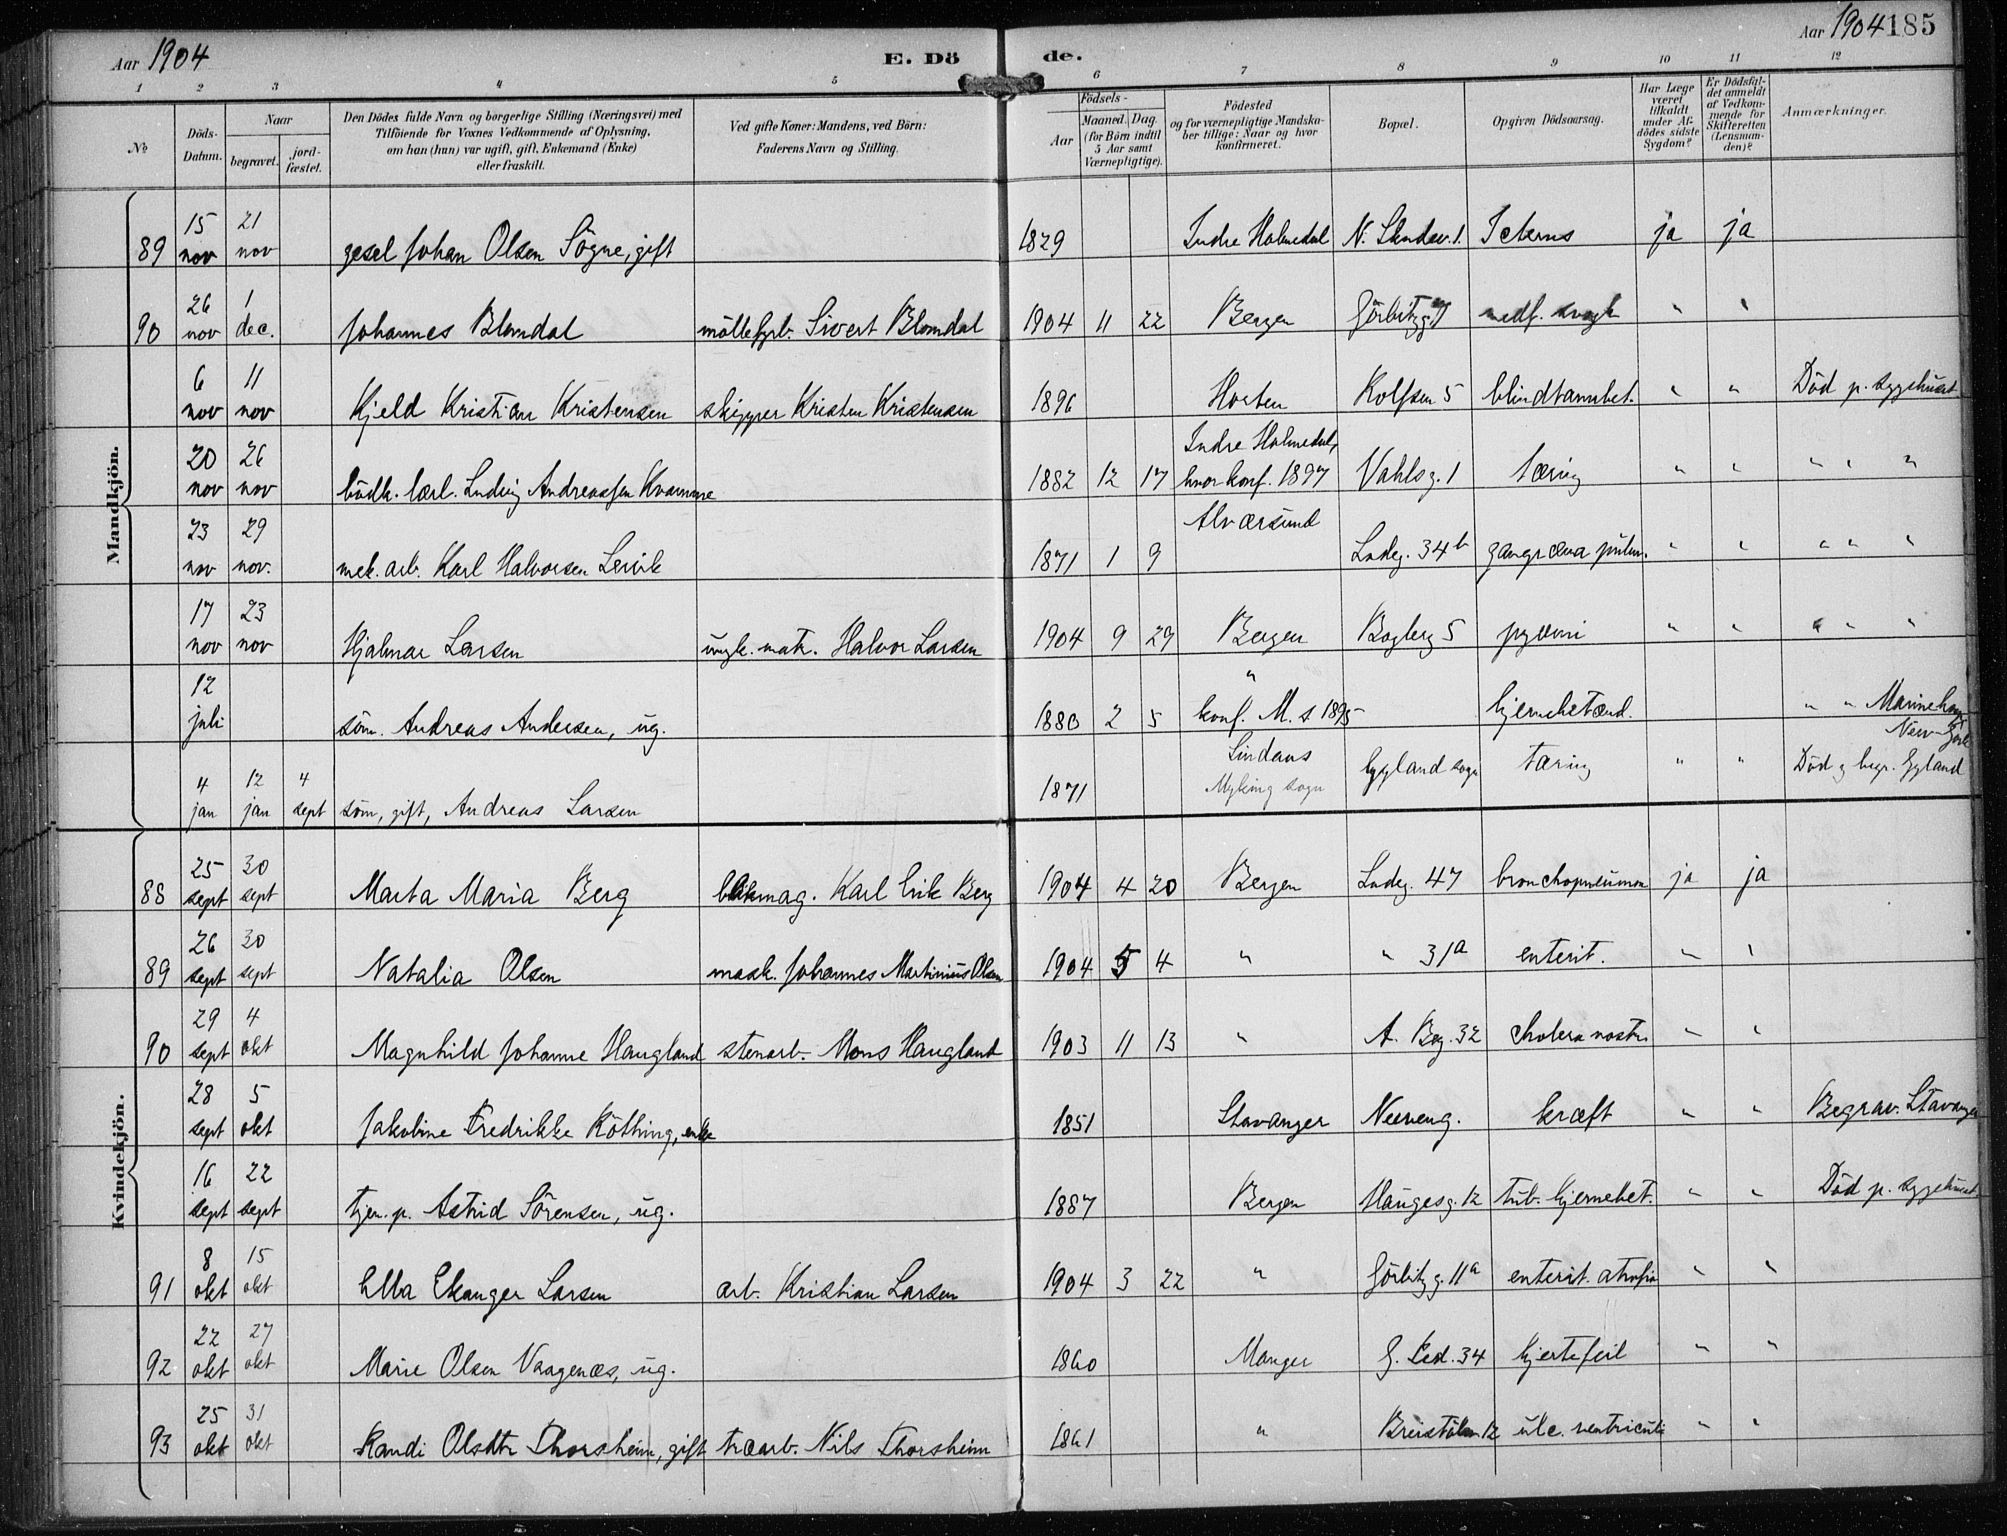 Aar 1904 E. Dö de. Aar 1904 185
1 2 3 4 5 6 7 8 9 10 11 12
No
Döds-Datum.
Naar
begravet.
jord-fæstet.
Den Dödes fulde Navn og borgerlige Stilling (Næringsvei) med
Tilföiende for Voxnes Vedkommende af Oplysning,
om han (hun) var ugift, gift, Enkemand (Enke)
eller fraskilt.
Ved gifte Koner: Mandens, ved Börn:
Faderens Navn og Stilling.
Födsels-
Aar
Maaned. Dag.
(for Börn indtil
5 Aar samt
Værnepligtige).
Födested
og for værnepligtige Mandska-
ber tillige: Naar og hvor
konfirmeret.
Bopæl.
Opgiven Dödsaarsag.
Har Læge
været
tilkaldt
under Af-
dödes sidste
Sygdom?
Er Dödsfal-
det anmeldt
af Vedkom-
mende for
Skifteretten
(Lensman-
den)?
Anmærkninger.
Mandkjön.
89 15 nov 21 nov gesel Johan Olsen Sögne, gift 1829 Indre Holmedal N. 1. Icterus ja ja
90 26 nov 1 dec. Johannes Blomdal Sivert Blomdal 1904 11 22 Bergen Görbitzg. 7 medf. svagh " "
6 nov 11 nov Kjeld Kristian Kristensen skipper Kristen Kristensen 1896 Horten 5 blindtarmbet. " " Död p. sygehuset
20 nov 26 nov bödk. lærl. Ludvig Andreassen Kvamme 1882 12 17 Indre Holmedal, hvor konf. 1897 Vahlsg. 1 tæring " " " " "
23 nov 29 nov. mek. arb. Karl Halvorsen Leivik 1871 1 9 Alværsund Ladeg. 34b gangræna pulm. " " " " "
17 nov 23 nov Hjalmar Larsen matr. Halvor Larsen 1904 9 29 Bergen 5 pyæmi " " " " "
12 juli söm. Andreas Andersen, ug. 1880 2 5 " konf. M. s 1895 hjernebetænd. " " Marinehosp New-York
4 jan 12 jan 4 sept söm, gift, Andreas Larsen 1871 Lindaas Myking sogn Gyland sogn tæring " " Död og begr. Gyland
Kvindekjön.
88 25 sept 30 sept Marta Maria Berg Karl Erik Berg 1904 4 20 Bergen Ladeg. 47 bronchopneumon ja ja
89 26 sept 30 sept Natalia Olsen mask. Johannes Martinius Olsen 1904 5 4 " " 31a enterit. " "
90 29 sept 4 okt Magnhild Johanne Haugland stenarb. Mons Haugland 1903 11 13 " 32 cholera nostr. " "
28 sept 5 okt Jakobine Fredrikke Köthing, enke 1851 Stavanger Neweng. kræft " " Begrav. Stavanger
16 sept 22 sept tjen. p. Astrid Sörensen, ug. 1887 Bergen Haugesg. 12 tub. hjernebet. " " Död p. sygehuset
91 8 okt 15 okt Ella Ekanger Larsen arb. Kristian Larsen 1904 3 22 " Görbitzg. 11a enterit. atrofia " "
92 22 okt 27 okt Marie Olsen Vaagenæs, ug. 1860 Manger 34 hjertefeil " "
93 25 okt 31 okt Randi Olsdtr Thorsheim, gift træarb. Nils Thorsheim 1861 " Breistölen 12 ulc. ventriculi " "